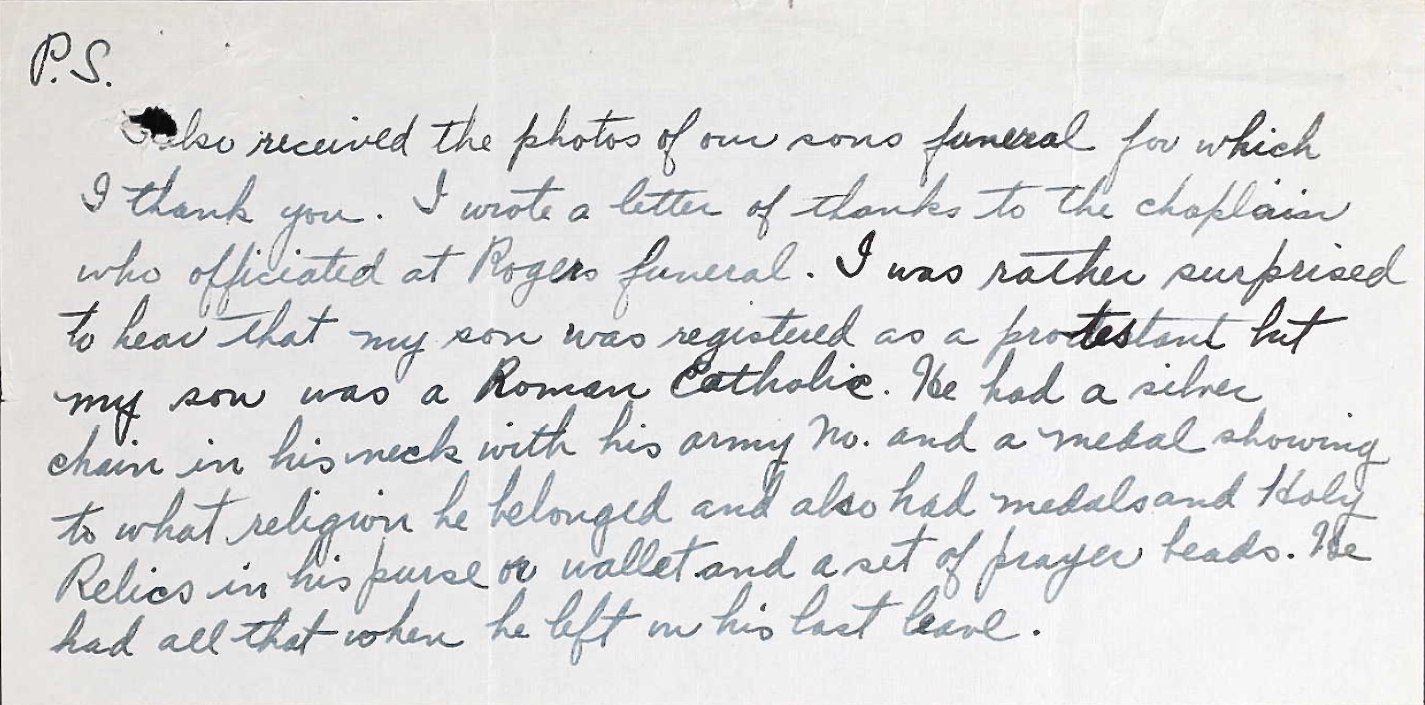 P.S.
also received the photos of our sons funeral for which
I thank you. I wrote a letter of thanks to the chaplain
who officiated at Rogers funeral. I was rather surprised
to hear that my son was registered as a protestant but
my son was a Roman Catholic. He had a silver
chain in his neck with his army No. and a medal showing
to what religion he belonged and also had medals and Holy
Relics in his purse or wallet and a set of prayer beads. He
had all that when he left on his last leave.